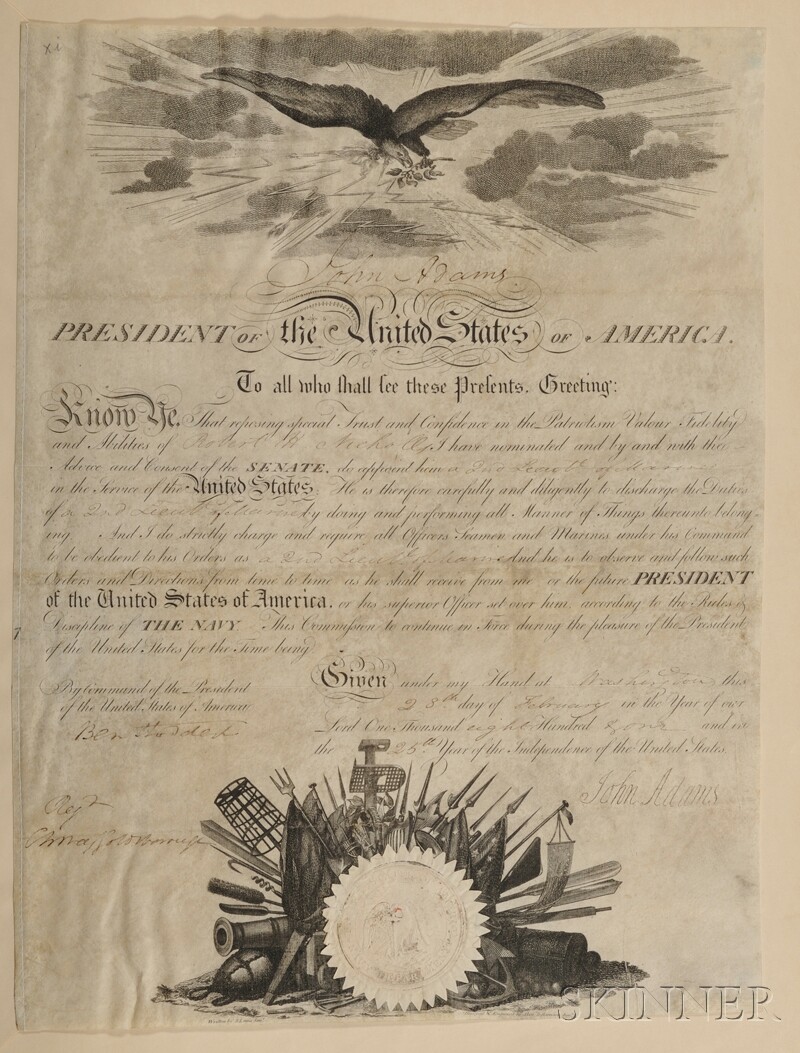 xi
John Adams.
PRESIDENT OF the United States OF AMERICA.
To all who shall see these Presents. Greeting:
Know Ye. That reposing special Trust and Confidence in the Patriotism Valour, Fidelity
and Abilities of Robert I have nominated and by and with the
Advice and Consent of the SENATE, do appoint him a 2nd Lieut of Marines
in the Service of the United States. He is therefore carefully and diligently to discharge the Duties
of a 2nd Lieut of Marines by doing and performing all Manner of Things thereunto belong-
ing. And I do strictly charge and require all Officers Seamen and Marines under his Command
to be obedient to his Orders as a 2nd Lieut of Marines And he is to observe and follow such
Orders and Directions from time to time as he shall receive from me or the future PRESIDENT
of the United States of America, or his superior Officer set over him, according to the Rules &
Discipline of THE NAVY This Commission to continue in Force during the pleasure of the President
of the United States for the Time being
Given under my Hand at Washington this
28th day of February in the Year of our
Lord One Thousand eight Hundred & one and in
the 25th Year of the Independence of the United States.
By Command of the President
of the United States of America
Ben Stoddert
John Adams
Regt
Chas Goldsborough
SKINNER